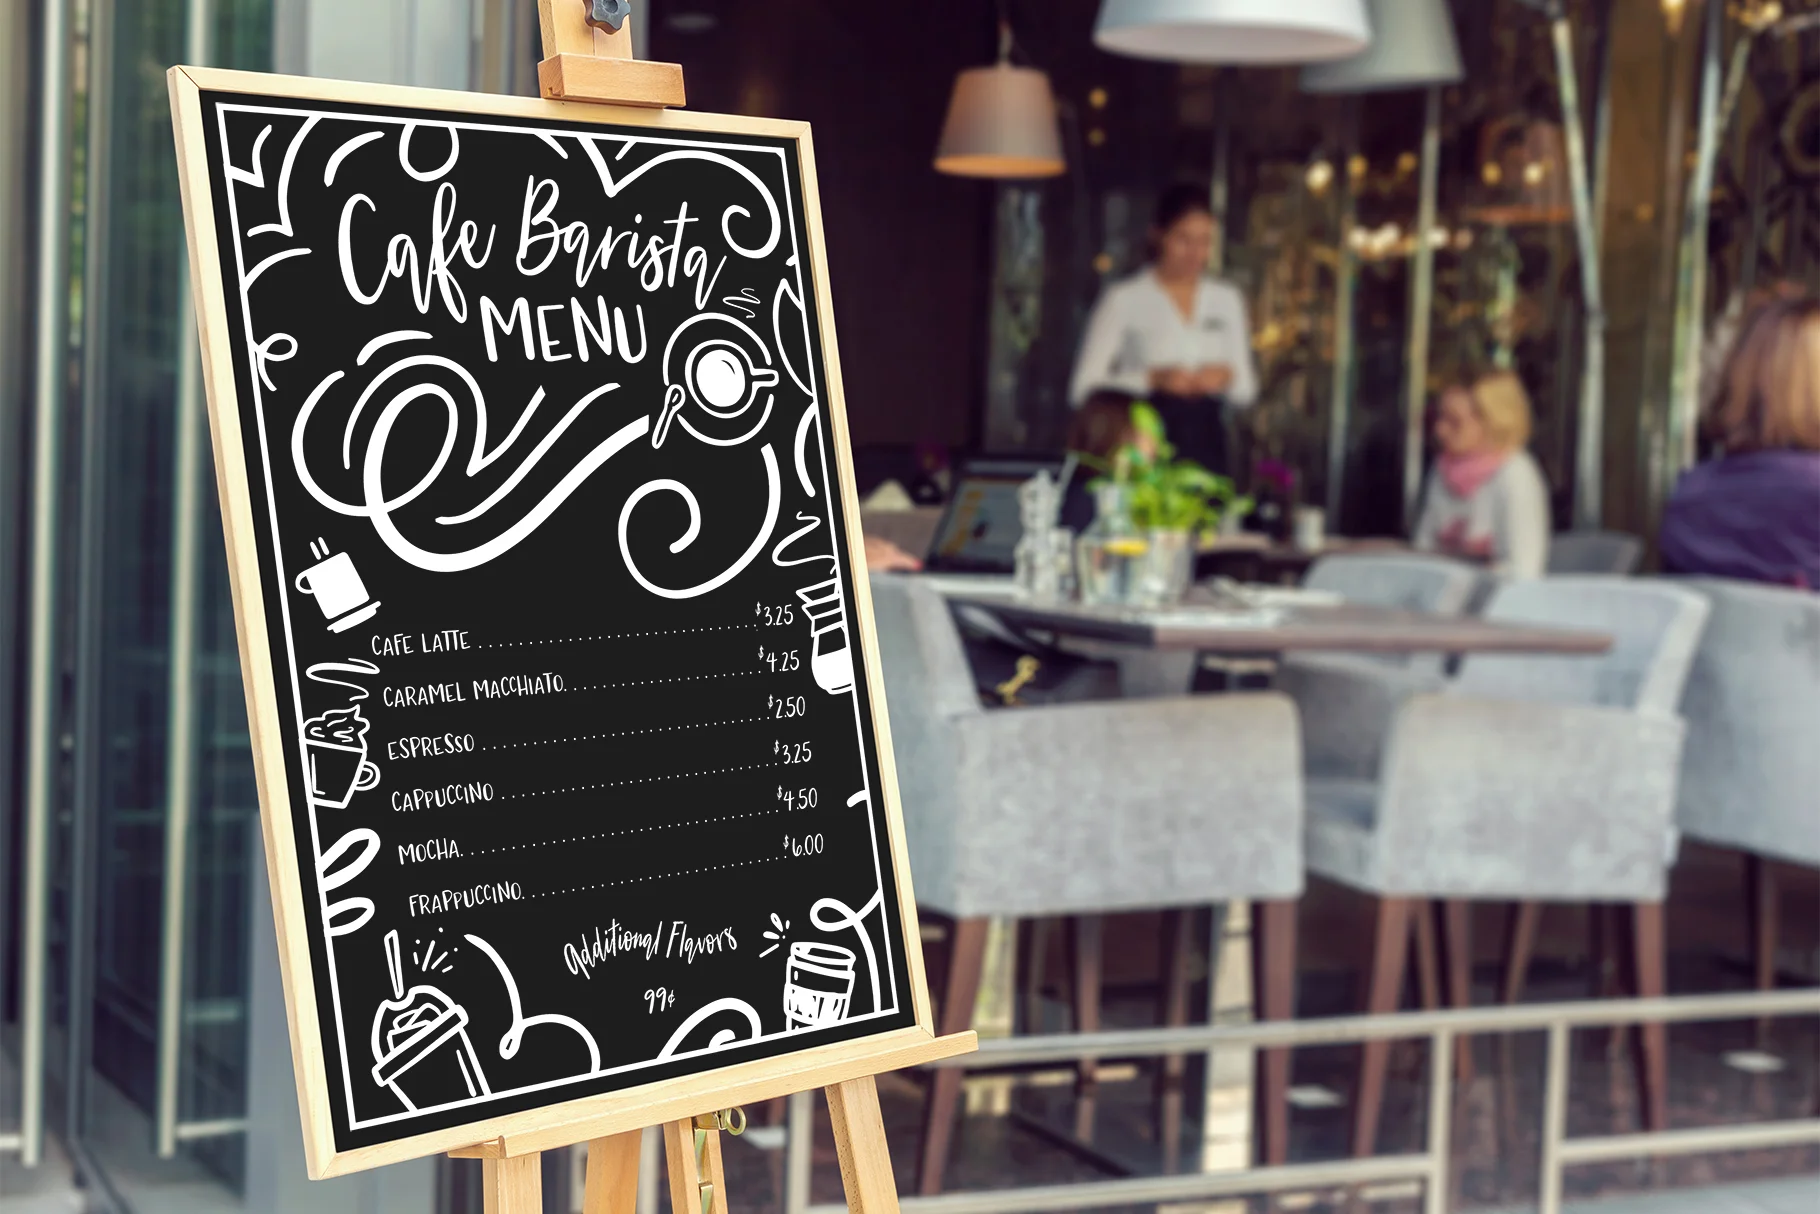 Cafe Barista
MENU
CAFE LATTE . . . . . . . . . . . . . . . . . . . . . . . . . . . . $3.25
CARAMEL MACCHIATO. . . . . . . . . . . . . . . . . . . $4.25
ESPRESSO . . . . . . . . . . . . . . . . . . . . . . . . . . . . $2.50
CAPPUCCINO . . . . . . . . . . . . . . . . . . . . . . . . . . $3.25
MOCHA. . . . . . . . . . . . . . . . . . . . . . . . . . . . . . $4.50
FRAPPUCCINO. . . . . . . . . . . . . . . . . . . . . . . . . $6.00
Additional Flavors
99¢